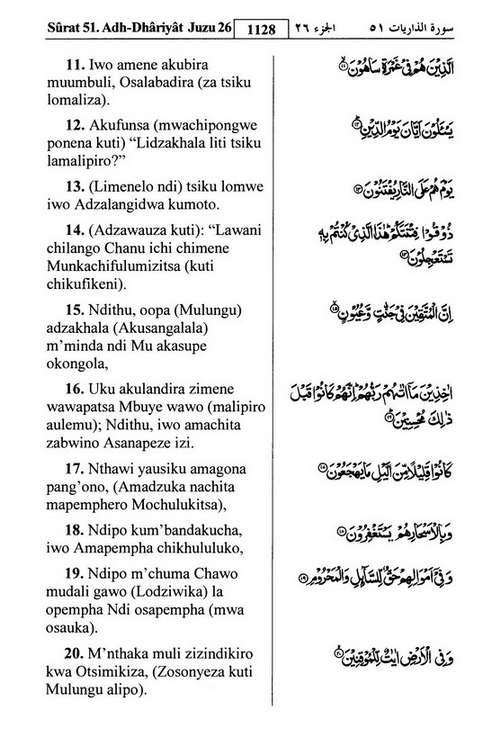 Sûrat 51. Adh-Dhâriyât Juzu 26
1128
الجزء ٢٦
سورة الذاريات ٥١
11. Iwo amene akubira
muumbuli, Osalabadira (za tsiku
lomaliza).
الَّذِينَ هُمْ فِي غَمْرَةٍ سَاهُونَ ۝١١
12. Akufunsa (mwachipongwe
ponena kuti) “Lidzakhala liti tsiku
lamalipiro?”
يَسْـَٔلُونَ أَيَّانَ يَوْمُ الدِّينِ ۝١٢
13. (Limenelo ndi) tsiku lomwe
iwo Adzalangidwa kumoto.
يَوْمَ هُمْ عَلَى النَّارِ يُفْتَنُونَ ۝١٣
14. (Adzawauza kuti): “Lawani
chilango Chanu ichi chimene
Munkachifulumizitsa (kuti
chikufikeni).
ذُوقُوا فِتْنَتَكُمْ هَٰذَا الَّذِي كُنْتُمْ بِهِ
تَسْتَعْجِلُونَ ۝١٤
15. Ndithu, oopa (Mulungu)
adzakhala (Akusangalala)
m’minda ndi Mu akasupe
okongola,
إِنَّ الْمُتَّقِينَ فِي جَنَّٰتٍ وَّعُيُونٍ ۝١٥
16. Uku akulandira zimene
wawapatsa Mbuye wawo (malipiro
aulemu); Ndithu, iwo amachita
zabwino Asanapeze izi.
اٰخِذِينَ مَآ اٰتٰىهُمْ رَبُّهُمْ إِنَّهُمْ كَانُوا قَبْلَ
ذٰلِكَ مُحْسِنِينَ ۝١٦
17. Nthawi yausiku amagona
pang’ono, (Amadzuka nachita
mapemphero Mochulukitsa),
كَانُوا قَلِيلًا مِّنَ الَّيْلِ مَا يَهْجَعُونَ ۝١٧
18. Ndipo kum’bandakucha,
iwo Amapempha chikhululuko,
وَبِالْأَسْحَارِ هُمْ يَسْتَغْفِرُونَ ۝١٨
19. Ndipo m’chuma Chawo
mudali gawo (Lodziwika) la
opempha Ndi osapempha (mwa
osauka).
وَفِي أَمْوَالِهِمْ حَقٌّ لِّلسَّآئِلِ وَالْمَحْرُومِ ۝١٩
20. M’nthaka muli zizindikiro
kwa Otsimikiza, (Zosonyeza kuti
Mulungu alipo).
وَفِي الْأَرْضِ اٰيٰتٌ لِّلْمُوقِنِينَ ۝٢٠